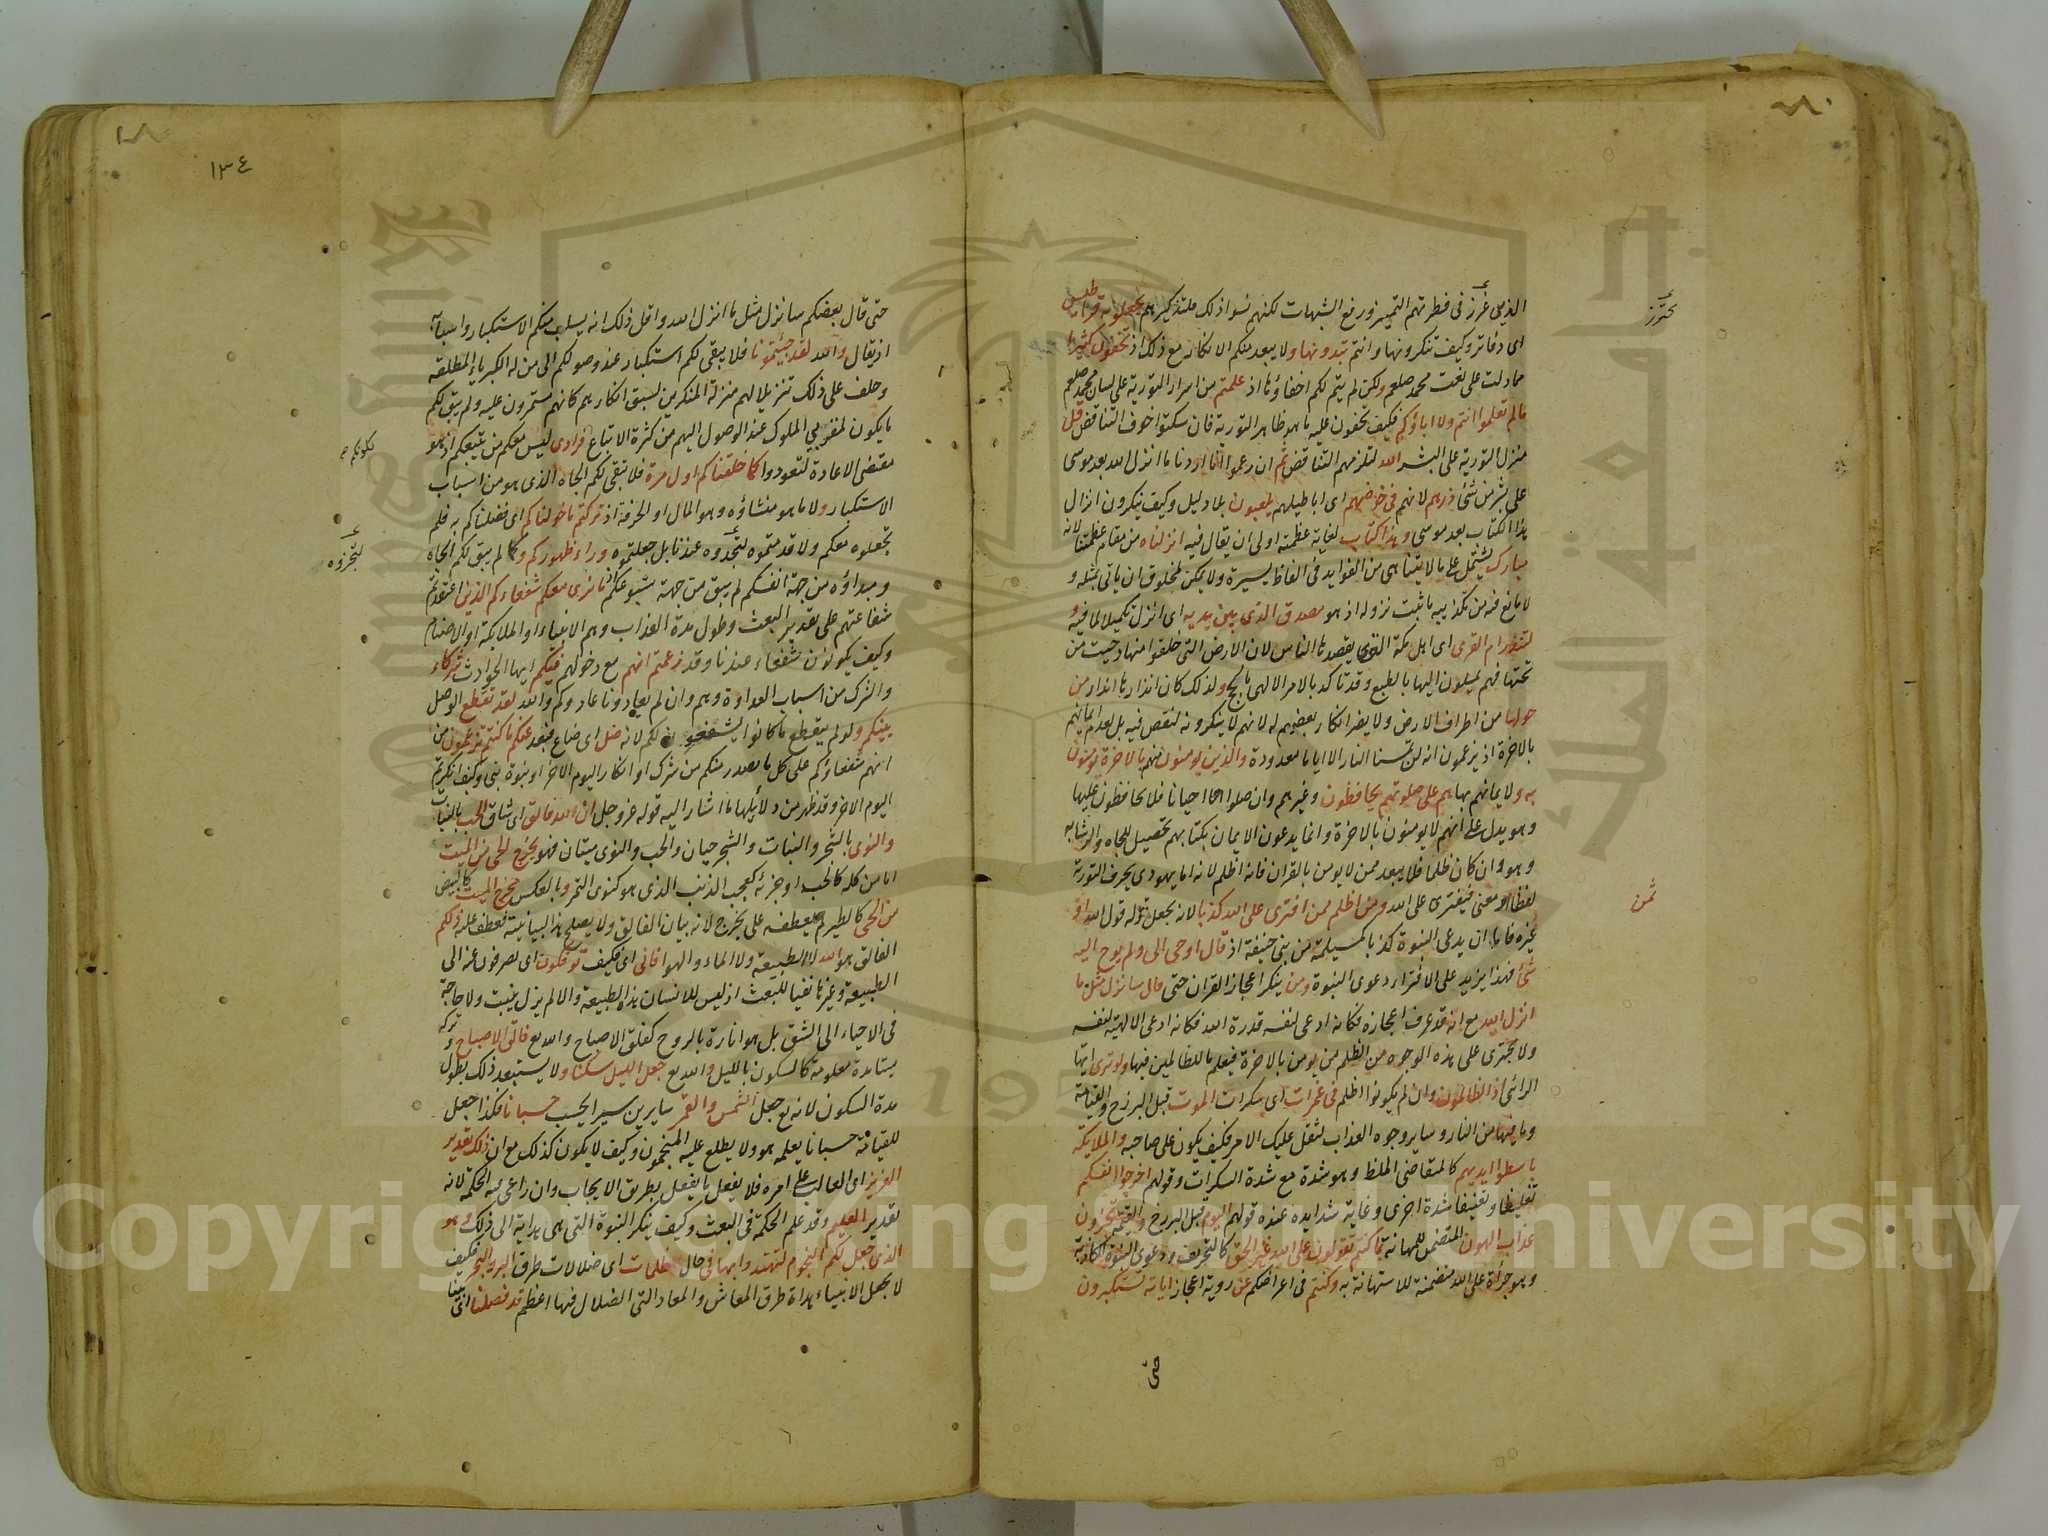 الذى غرز فى فطرتهم التميز ورفع الشبهات لكنهم نسوا ذلك فلتذكيرهم تجعلونه قراطيس
اى دفاتر وكيف تنكرونها وانتم تبدونها ولا يبعد منكم الانكار مع ذلك اذ تخفون كثيرا
مما دلت على نعت محمد صلعم ولكن لم يتم لكم اخفاؤها اذ علمتم من اسرار التورية على لسان محمد صلعم
مالم تعلموا انتم ولا اباؤكم فكيف تخفون عليه ما هو ظاهر التورية فان سكتوا خوف التناقض قل
منزل التورية على البشر الله لتلزمهم التناقض ثم ان زعموا انا اردنا ما انزل الله بعد موسى
على بشر من شئ ذرهم لانهم فى خوضهم اى اباطيلهم يلعبون بلا دليل وكيف ينكرون انزال
هذا الكتاب بعد موسى وهذا كتاب لغاية عظمته اولى ان يقال فيه انزلناه من مقام عظمتنا لانه
مبارك يشتمل على ما لا يتناهى من الفوايد فى الفاظ يسيرة ولا يمكن لمخلوق ان ياتى بمثله و
لا مانع فيه من تكذيبه ما ثبت نزوله اذ هو مصدق الذى بين يديه اى انزل تكميلا لما فيه و
لتنذر ام القرى اى اهل مكة التى يقصدها الناس لان الارض التى خلقوا منها دحيت من
تحتها فهم يميلون اليها بالطبع وقد تاكد بالامر الالهى بالحج ولذلك كان انذارها انذار من
حولها من اطراف الارض ولا يضر انكار بعضهم له لانهم لا ينكرونه لنقص فيه بل لعدم ايمانهم
بالاخرة اذ يزعمون انه لن تمسنا النار الا اياما معدودة والذين يومنون منهم بالاخرة يومنون
به ولايمانهم بها هم على صلوتهم يحافظون وغيرهم وان صلوا احيانا فلا يحافظون عليها
وهو يدل على انهم لا يومنون بالاخرة وانما يدعون الايمان بكتابهم تحصيل للجاه والرشا به
وهو وان كان ظلما فلا يبعد ممن لا يومن بالقران فانه اظلم لانه اما يهودى يحرف التورية
لفظا او معنى فيفترى على الله ومن اظلم ممن افترى على الله كذبا لانه يجعل قوله قول الله او
غيره فاما ان يدعى النبوة كذبا كمسيلمة من بنى حنيفة اذ قال اوحى الى ولم يوح اليه
شئ فهذا يزيد على الافتراء دعوى النبوة ومن ينكر اعجاز القران حتى قال سانزل مثل ما
انزل الله مع انه قد عرف اعجازه فكانه ادعى لنفسه قدرة الله فكانه ادعى الالهية لنفسه
ولا يجترى على هذه الوجوه من الظلم من يومن بالاخرة فيعلم ما للظالمين فيها ولو ترى ايها
الرائى اذ الظالمون وان لم يكونوا اظلم فى غمرات اى سكرات الموت قبل البرزخ والقيامة
وما فيها من النار وساير وجوه العذاب لثقل عليك الامر فكيف يكون على صاحبه والملايكة
باسطوا ايديهم كالمتقاضى الملظ وهو شدة مع شدة السكرات وقولهم اخرجوا انفسكم
تغليظا وتعنيفا شدة اخرى وغاية شدايده عنده قولهم اليوم قبل البرزخ والقيامة تجزون
عذاب الهون المتضمن للمهانة بما كنتم تقولون على الله غير الحق كالتحريف ودعوى النبوة الكاذبة
وهو جرأة على الله متضمنة للاستهانة به وكنتم فى اعراضكم عن روية اعجاز اياته تستكبرون
ثمن
١٣٤
حتى قال بعضكم سانزل مثل ما انزل الله واقل ذلك انه يسلب منكم الاستكبار واسبابه
اذ يقال والله لقد جئتمونا فلا يبقى لكم استكبار عند وصولكم الى من له الكبرياء المطلقة
وحلف على ذلك تنزيلا لهم منزلة المنكرين لسبق انكارهم كانهم مستمرون عليه ولم يبق لكم
ما يكون لمقربى الملوك عند الوصول اليهم من كثرة الاتباع فرادى ليس معكم من يتبعكم اذ هو
مقتضى الاعادة لتعودوا كما خلقناكم اول مرة فلا تبقى لكم الجاه الذى هو من اسباب
الاستكبار ولا ما هو منشاؤه وهو المال او الحرفة اذ تركتم ما خولناكم اى فضلناكم به فلم
تجعلوه معكم ولا قدمتموه لتجدوه عندنا بل جعلتموه وراء ظهوركم وكما لم يبق لكم الجاه
ومبداؤه من جهة انفسكم لم يبق من جهة متبوعكم اذ ما نرى معكم شفعاءكم الذين اعتقدتم
شفاعتهم على تقدير البعث وطول مدة العذاب وهم الانبياء او الملايكة او الاصنام
وكيف يكونون شفعاء عندنا وقد زعمتم انهم مع دخولهم فيكم ايها الحوادث شركاء
والشرك من اسباب العداوة وهم وان لم يعادونا عادوكم والله لقد تقطع الوصل
بينكم ولو لم ينقطع ما كانوا ليشفعون لكم لانه ضل اى ضاع فبعد عنكم ما كنتم تزعمون من
انهم شفعاؤكم على كل ما يصدر منكم من شرك او انكار اليوم الاخر او نبوة نبى وكيف انكرتم
اليوم الاخر وقد ظهر من دلايلها ما اشار اليه قوله عز وجل ان الله فالق اى شاق الحب بالنبات
والنوى بالشجر والنبات والشجر حيان والحب والنوى ميتان فهو يخرج الحى من الميت
اما من كله كالحب او جزئه كعجب الذنب الذى هو كنوى التمر وبالعكس مخرج الميت كالبيض
من الحى كالطير لم يعطفه على يخرج لانه بيان الفالق ولا يصلح هذا لبيانيته فعطف عليه ذلكم
الفالق هو الله لا الطبيعة ولا الماء والهوا فانى اى فكيف توفكون اى تصرفون عنه الى
الطبيعة وغيرها نفيا للبعث اذ ليس للانسان هذه الطبيعة والا لم يزل ينبت ولا حاجة
فى الاحياء الى الشق بل هو انارة بالروح كفلق الاصباح والله تع فالق الاصباح وتركه
مستامدة معلومة كالسكون بالليل والله تع جعل الليل سكنا ولا يستبعد ذلك بطول
مدة السكون لانه تع جعل الشمس والقمر سايرين سير الحسب حسبانا فكذا جعل
للقيامة حسبانا يعلمه هو ولا يطلع عليه المنجمون وكيف لا يكون كذلك مع ان ذلك تقدير
العزيز اى الغالب على امره فلا يفعل ما يفعل بطريق الايجاب وان راعى فيه الحكمة لانه
تقدير العليم وقد علم الحكمة فى البعث وكيف ينكر النبوة التى هى هداية الى ذلك وهو
الذى جعل لكم النجوم لتهتدوا بها فى حال ظلمات اى ضلالات طرق البر والبحر فكيف
لا يجعل الانبياء هداة طرق المعاش والمعاد التى الضلال فيها اعظم قد فصلنا اى بينا